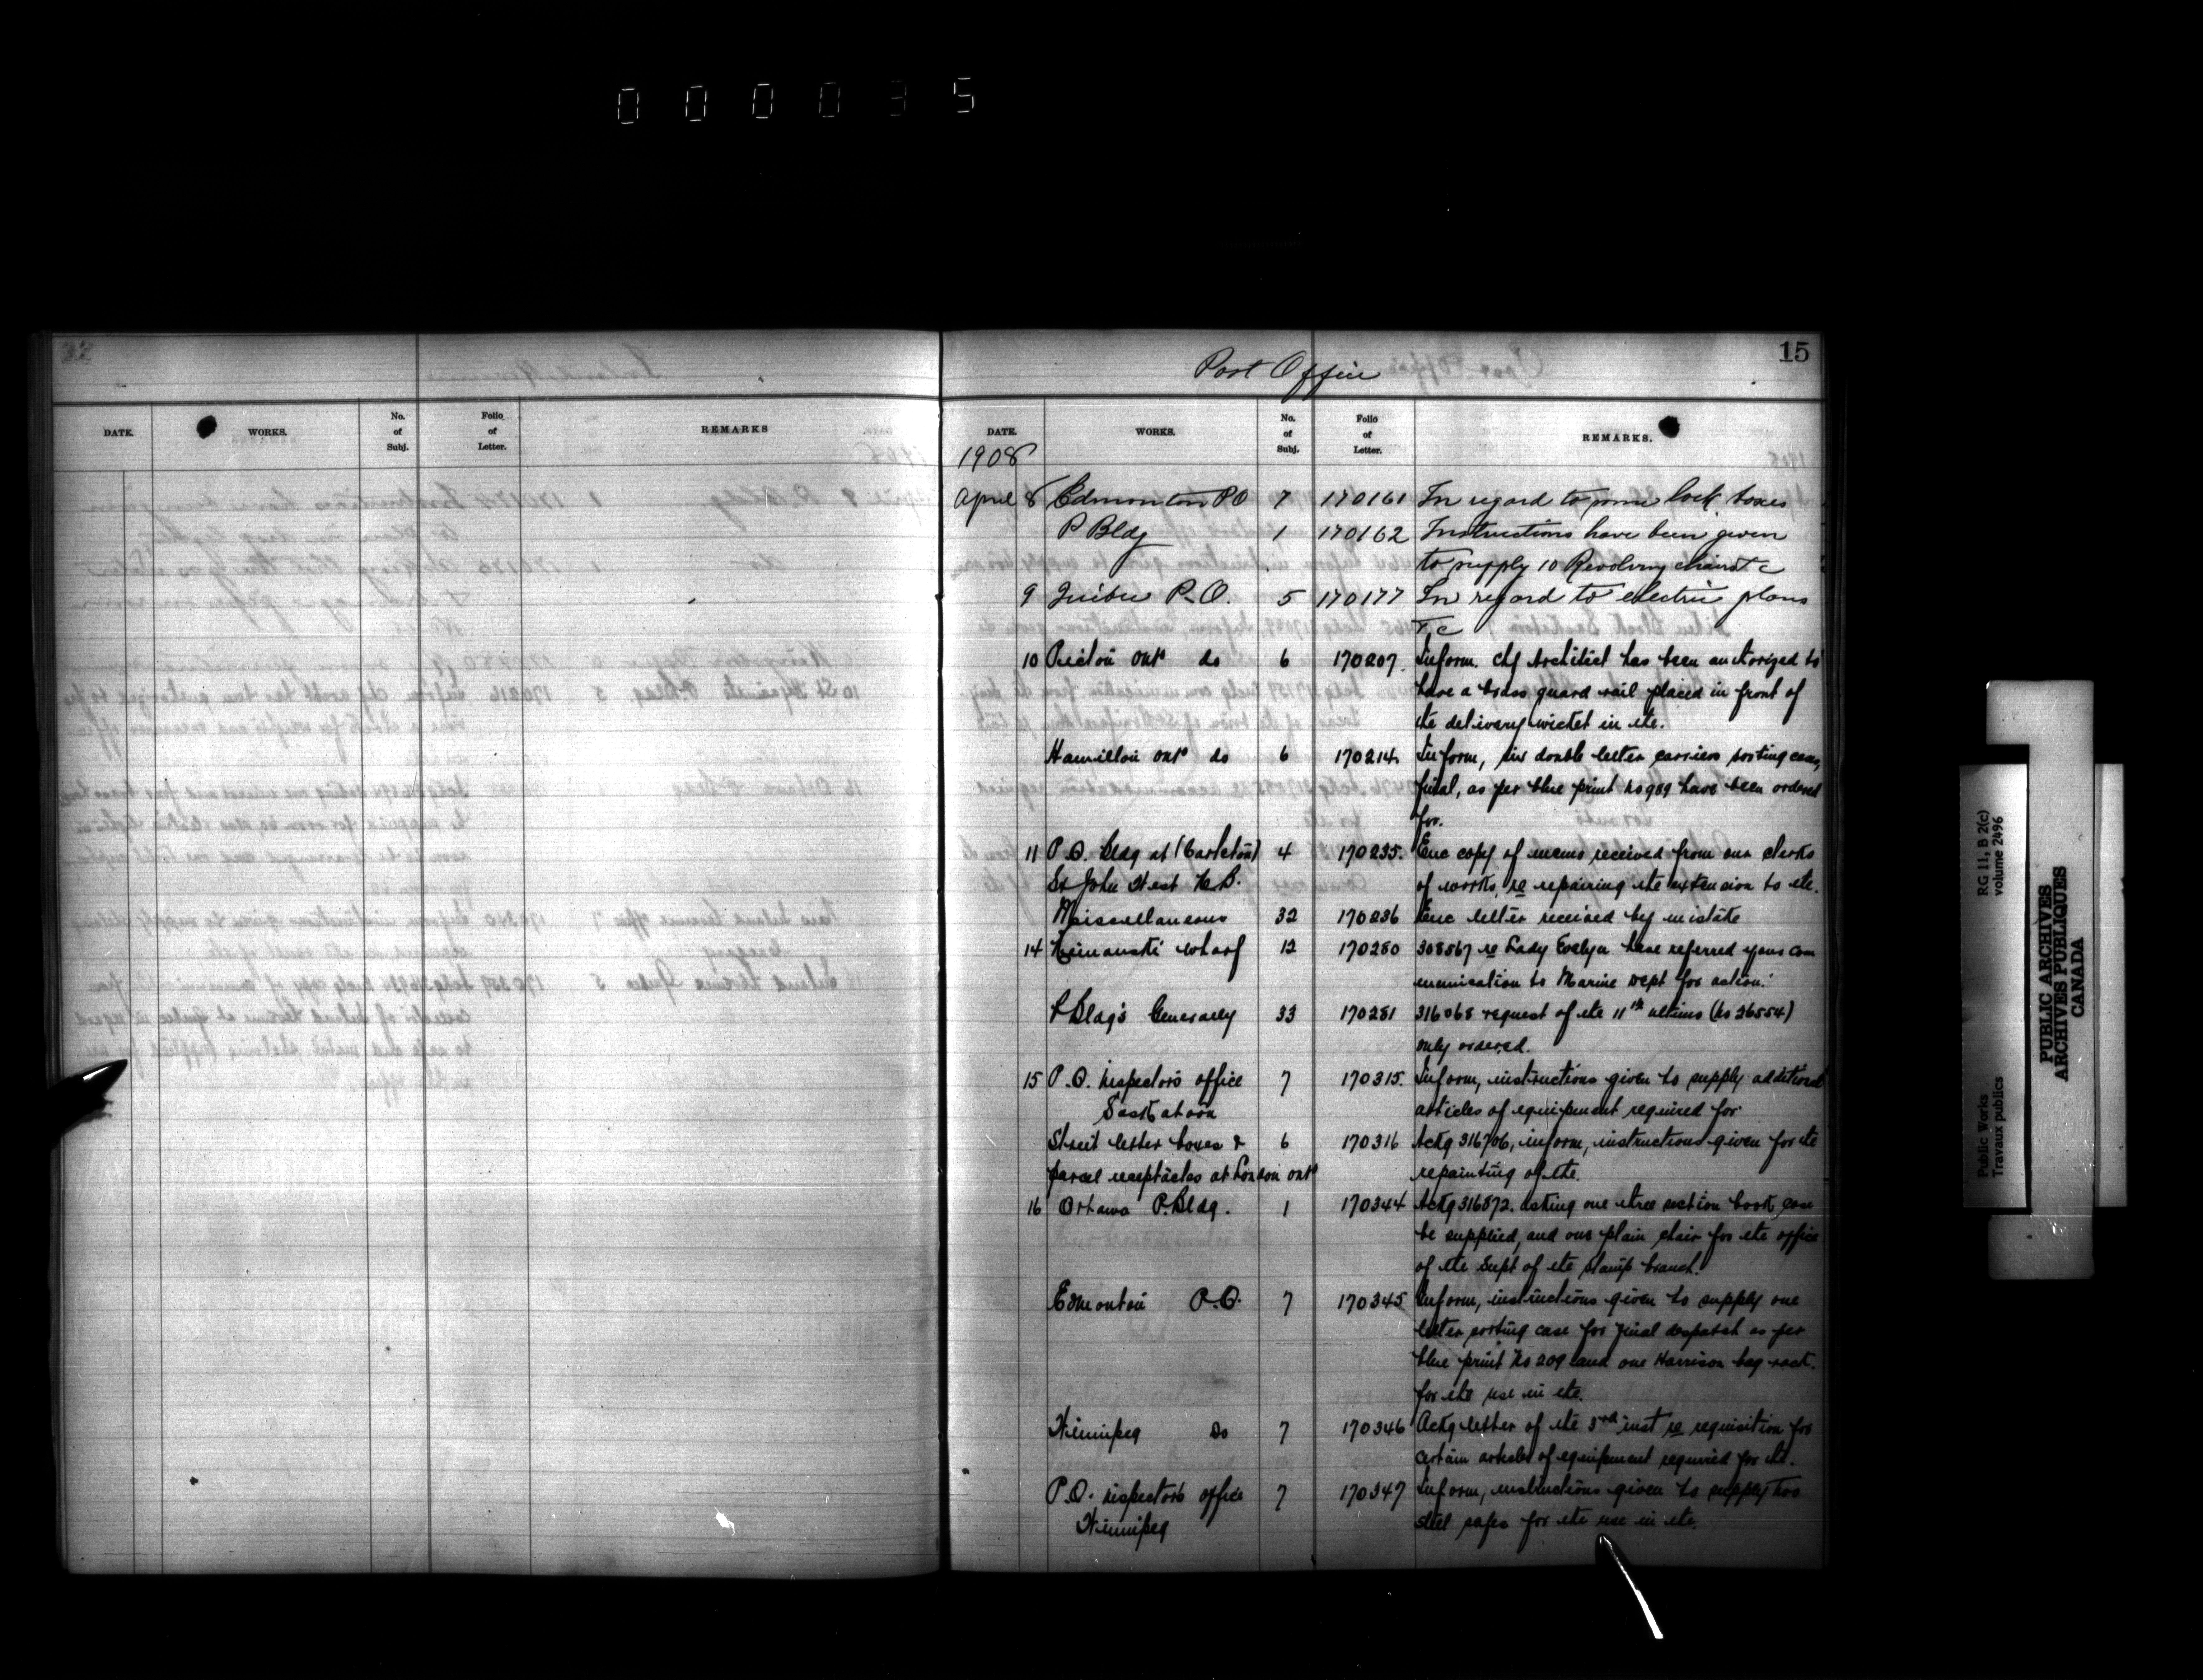 0 0 0 0 3 5
Post Office
15
DATE. WORKS. No. of Subj. Folio of Letter. REMARKS
DATE. WORKS. No. of Subj. Folio of Letter. REMARKS.
1908
April 8 Edmonton P.O 7 170161 In regard to some lock boxes
P Bldg 1 170162 Instructions have been given
to supply 10 Revolving chairs &c
9 Quebec P.O. 5 170177 In regard to electric plans
&c
10 Picton Ont do 6 170207. Inform. Chf Architect has been authorized to
have a brass guard rail placed in front of
the delivery wicket in etc.
Hamilton Ont do 6 170214 Inform, six double letter carriers sorting cases,
final, as per blue print No 989 have been ordered
for.
11 P.O. Bldg at (Carleton) 4 170235. Enc copy of memo received from our clerks
St John West N.B. of works, re repairing the extension to etc.
Miscellaneous 32 170236 Enc letter received by mistake
14 Rimouski Wharf 12 170280 308567 re Lady Evelyn have referred your com
munication to Marine Dept for action.
P Bldg's Generally 33 170281 316068 request of the 11th ultimo (No 26554)
only ordered.
15 P.O. Inspectors office 7 170315. Inform, instructions given to supply additional
Saskatoon articles of equipment required for
Street letter boxes & 6 170316 Ackg 316706, inform, instructions given for the
parcel receptacles at London Ont repainting of etc.
16 Ottawa P. Bldg. 1 170344 Ackg 316872. asking one three section book case
be supplied, and one plain chair for the office
of the Supt of the stamp branch.
Edmonton P.O. 7 170345 Inform, instructions given to supply one
letter sorting case for final despatch as per
blue print No 209 and one Harrison bag rack.
for the use in etc.
Winnipeg Do 7 170346 Ackg letter of the 3rd inst re requisition for
certain articles of equipment required for etc.
P.O. inspectors office 7 170347 Inform, instructions given to supply two
Winnipeg steel safes for the use in etc.
RG 11, B 2(c)
volume 2496
PUBLIC ARCHIVES
ARCHIVES PUBLIQUES
CANADA
Public Works
Travaux publics